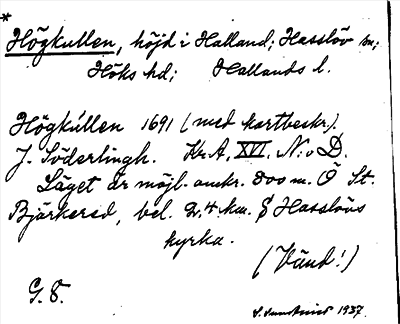 *
Högkullen, höjd i Halland; Hasslöv sn;
Höks hd; Hallands l.
Högkúllen 1691 (med kartbeskr.).
J. Söderlingh. Kr. A, XVI. N:o D.
Läget är möjl. omkr. 800 m. Ö St.
Bjärkered, bel. 2,4 km. S Hasslövs
kyrka.
(Vänd!)
G. 8.
1937.